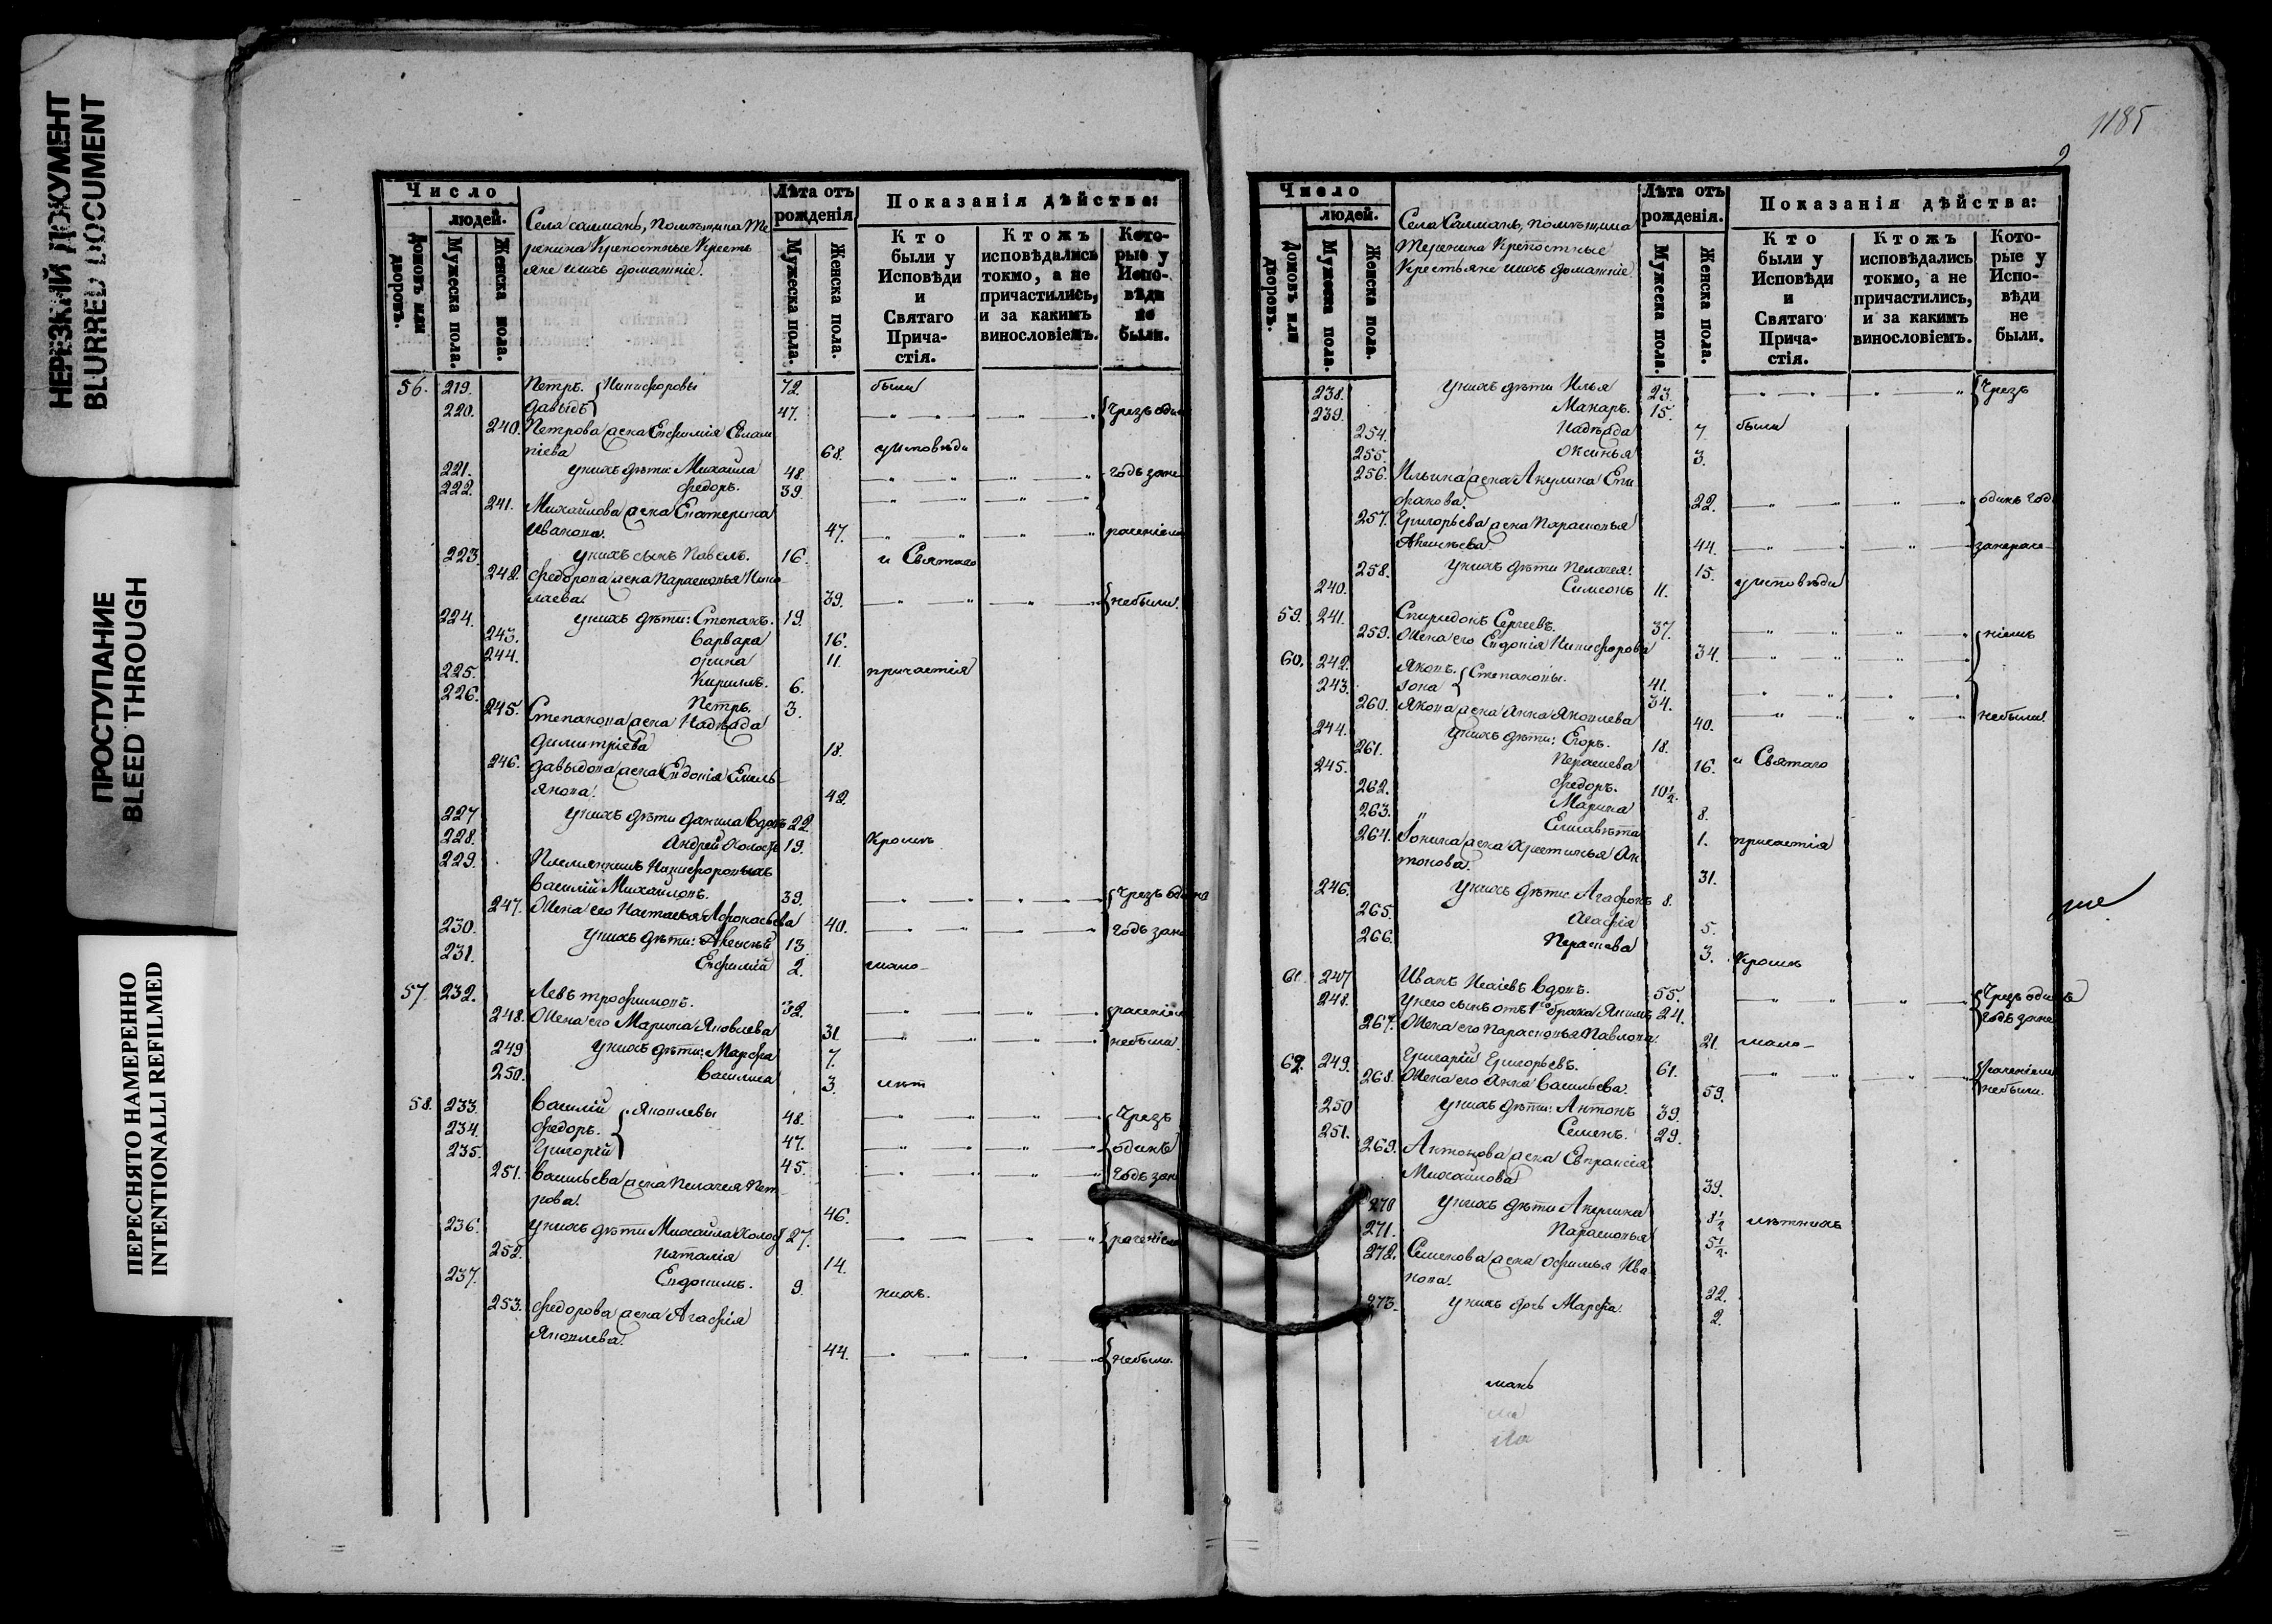 НЕРЕЗКИЙ ДОКУМЕНТ
BLURRED DOCUMENT
ПРОСТУПАНИЕ
BLEED THROUGH
ПЕРЕСНЯТО НАМЕРЕННО
INTENTIONALLI REFILMED
Число
людей.
Домовъ или дворовъ.
Мужеска пола.
Женска пола.
Лѣта отъ рожденія
Мужеска пола.
Женска пола.
Показанія дѣйства:
Кто были у Исповѣди и Святаго Прича-стія.
Ктожъ исповѣдались токмо, а не причастились, и за какимъ винословіемъ.
Кото-рые у Испо-вѣди не были.
Села Салмань, помѣщика Те
ренина крепостные кресть
яне и ихъ домашніе.
56. 219. Петръ. { Никифоровы 72. были
220. Давыдъ 47. Чрезъ один
240. Петрова жена Евфимія Евлам
піева 68. у исповѣди
221. у нихъ дѣти: Михайла 48. годъ зане
222. Федоръ. 39
241. Михайлова жена Екатерина
Иванова. 47. раченіем
223. у нихъ сынъ Павелъ. 16. и Святаго
242. Федорова жена Парасковья Нико
лаева. 39. небыли.
224. у нихъ дѣти: Степанъ. 19.
243. Варвара 16.
244. Орина 11.
225. Кирилъ. 6. причастія
226. Петръ. 3.
245. Степанова жена Надежда
Димитріева 18.
246. Давыдова жена Евдокія Емель
янова. 42.
227 у нихъ дѣти Данила вдовъ 22
228. Андрей холостъ 19. Кромѣ
229. Племянникъ Никифоровыхъ
Василій Михайловъ. 39. Чрезъ одина
247. Жена его Настасья Афонасьева 40. годъ зане
230. у нихъ дѣти: Алексѣй 13
231. Евфимій 2. мало-
57. 232. Левъ Трофимовъ. 32. рачением
248. Жена его Марина Яковлева 31 небыли.
249 у нихъ дѣти: Марфа 7.
250. Василиса 3. лѣт
58. 233. Василій } Яковлевы 48. Чрезъ
234. Федоръ. 47. одинъ
235. Григорій 45. годъ зан
251. Васильева жена Пелагея Пет
рова. 46.
236. у нихъ дѣти Михайла холос 27. раченіем
252. Наталія 14.
237. Евдокимъ. 9. нихъ.
253. Федорова жена Агафія
Яковлева. 44. небыли.
1185
Число
людей.
Домовъ или дворовъ.
Мужеска пола.
Женска пола.
Лѣта отъ рожденія.
Мужеска пола.
Женска пола.
Показанія дѣйства:
Кто были у Исповѣди и Святаго Прича-стія.
Ктожъ исповѣдались токмо, а не причастились, и за какимъ винословіемъ.
Кото-рые у Испо-вѣди не были.
Села Салмань, помѣщика
Теренина крепостные
крестьяне и ихъ домашніе
238. у нихъ дѣти Илья 23. Чрезъ
239. Макаръ. 15.
254. Надежда 7. были
255. Оксинья 3.
256. Ильина жена Акулина Епи
фанова. 22. одинъ год
257. Григорьева жена Парасковья
Алексѣева. 44. занераче-
258. у нихъ дѣти Пелагея. 15.
240. Симеонъ 11. у исповѣди
59. 241. Спиридонъ Сергеевъ. 37. ніемъ
259. Жена его Евдокія Никифорова 34.
60. 242. Яковъ. { Степановы. 41.
243. Іона 34.
260. Якова жена Анна Яковлева 40. небыли
244. у нихъ дѣти: Егоръ. 18.
261. Параскева 16. и Святаго
245. Федоръ. 10½.
262. Марина 8.
263. Елисавета 1. причастія
264. Іонина жена Христинья Ан
тонова. 31.
246. у нихъ дѣти Агафонъ 8.
265. Агафія 5.
266. Параскева 3. Кромѣ
61 247 Иванъ Исаіевъ вдовъ. 55. Чрезъ одинъ
248. у него сынъ отъ 1го брака Якимъ 24. годъ зане
267. Жена его Парасковья Павлова. 21. мало-
62. 249. Григорій Григорьевъ. 61. рачением
268. Жена его Анна Васильева. 59. небыли.
250 у нихъ дѣти: Антонъ 39.
251. Семенъ. 29.
269. Антонова жена Евпраксія
Михайлова 39.
270 у нихъ дѣти Акулина 8½ лѣтнихъ
271. Парасковья 5½.
272. Семенова жена Офимья Ива
нова. 22.
273. у нихъ дочь Марфа. 2.
мань